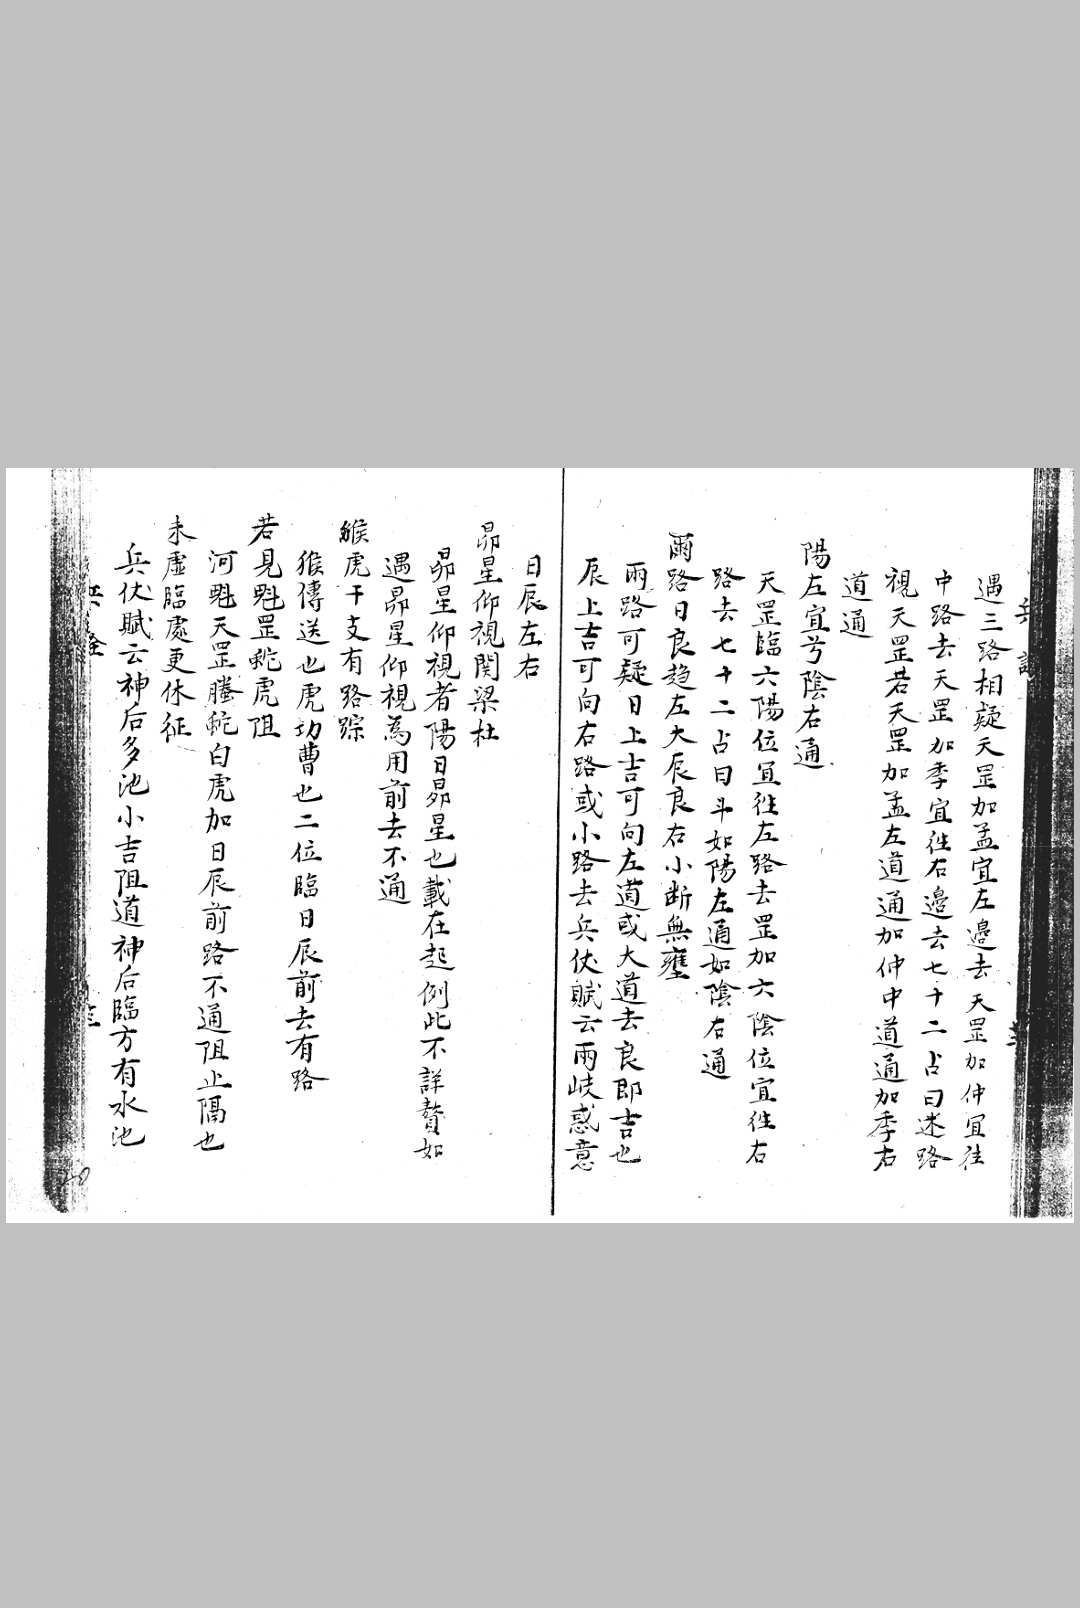 遇三路相疑天罡加孟宜左邉去天罡加仲宜往
中路去天罡加季宜往右邉去七十二占曰迷路
視天罡若天罡加孟左道通加仲中道通加季右
道通
陽左宜兮陰右通
天罡臨六陽位宜往左路去罡加六陰位宜往右
路去七十二占曰斗如陽左通如陰右通
爾路日良趋左大辰良右小断無壅
兩路可疑日上吉可向左道或大道去良即吉也
辰上吉可向右路或小路去兵伏賦云兩岐惑意
日辰左右
昴星仰視関梁杜
昴星仰視者陽日昴星也載在起例此不詳贅如
遇昴星仰視為用前去不通
猴虎干支有路踪
猴傳送也虎功曹也二位臨日辰前去有路
若見魁罡蛇虎阻
河魁天罡螣蛇白虎加日辰前路不通阻止隔也
未虛臨處更休征
兵伏賦云神后多池小吉阻道神后臨方有水池